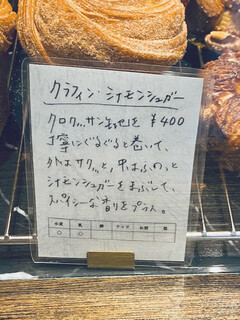 クラフィン・シナモンシュガー
クロワッサン生地を ¥400
丁寧にぐるぐると巻いて、
外はサクッと，中はふわっと
シナモンシュガーをまぶして、
スパイシーな香りをプラス。
小麦 乳 卵 ナッツ
○ ○